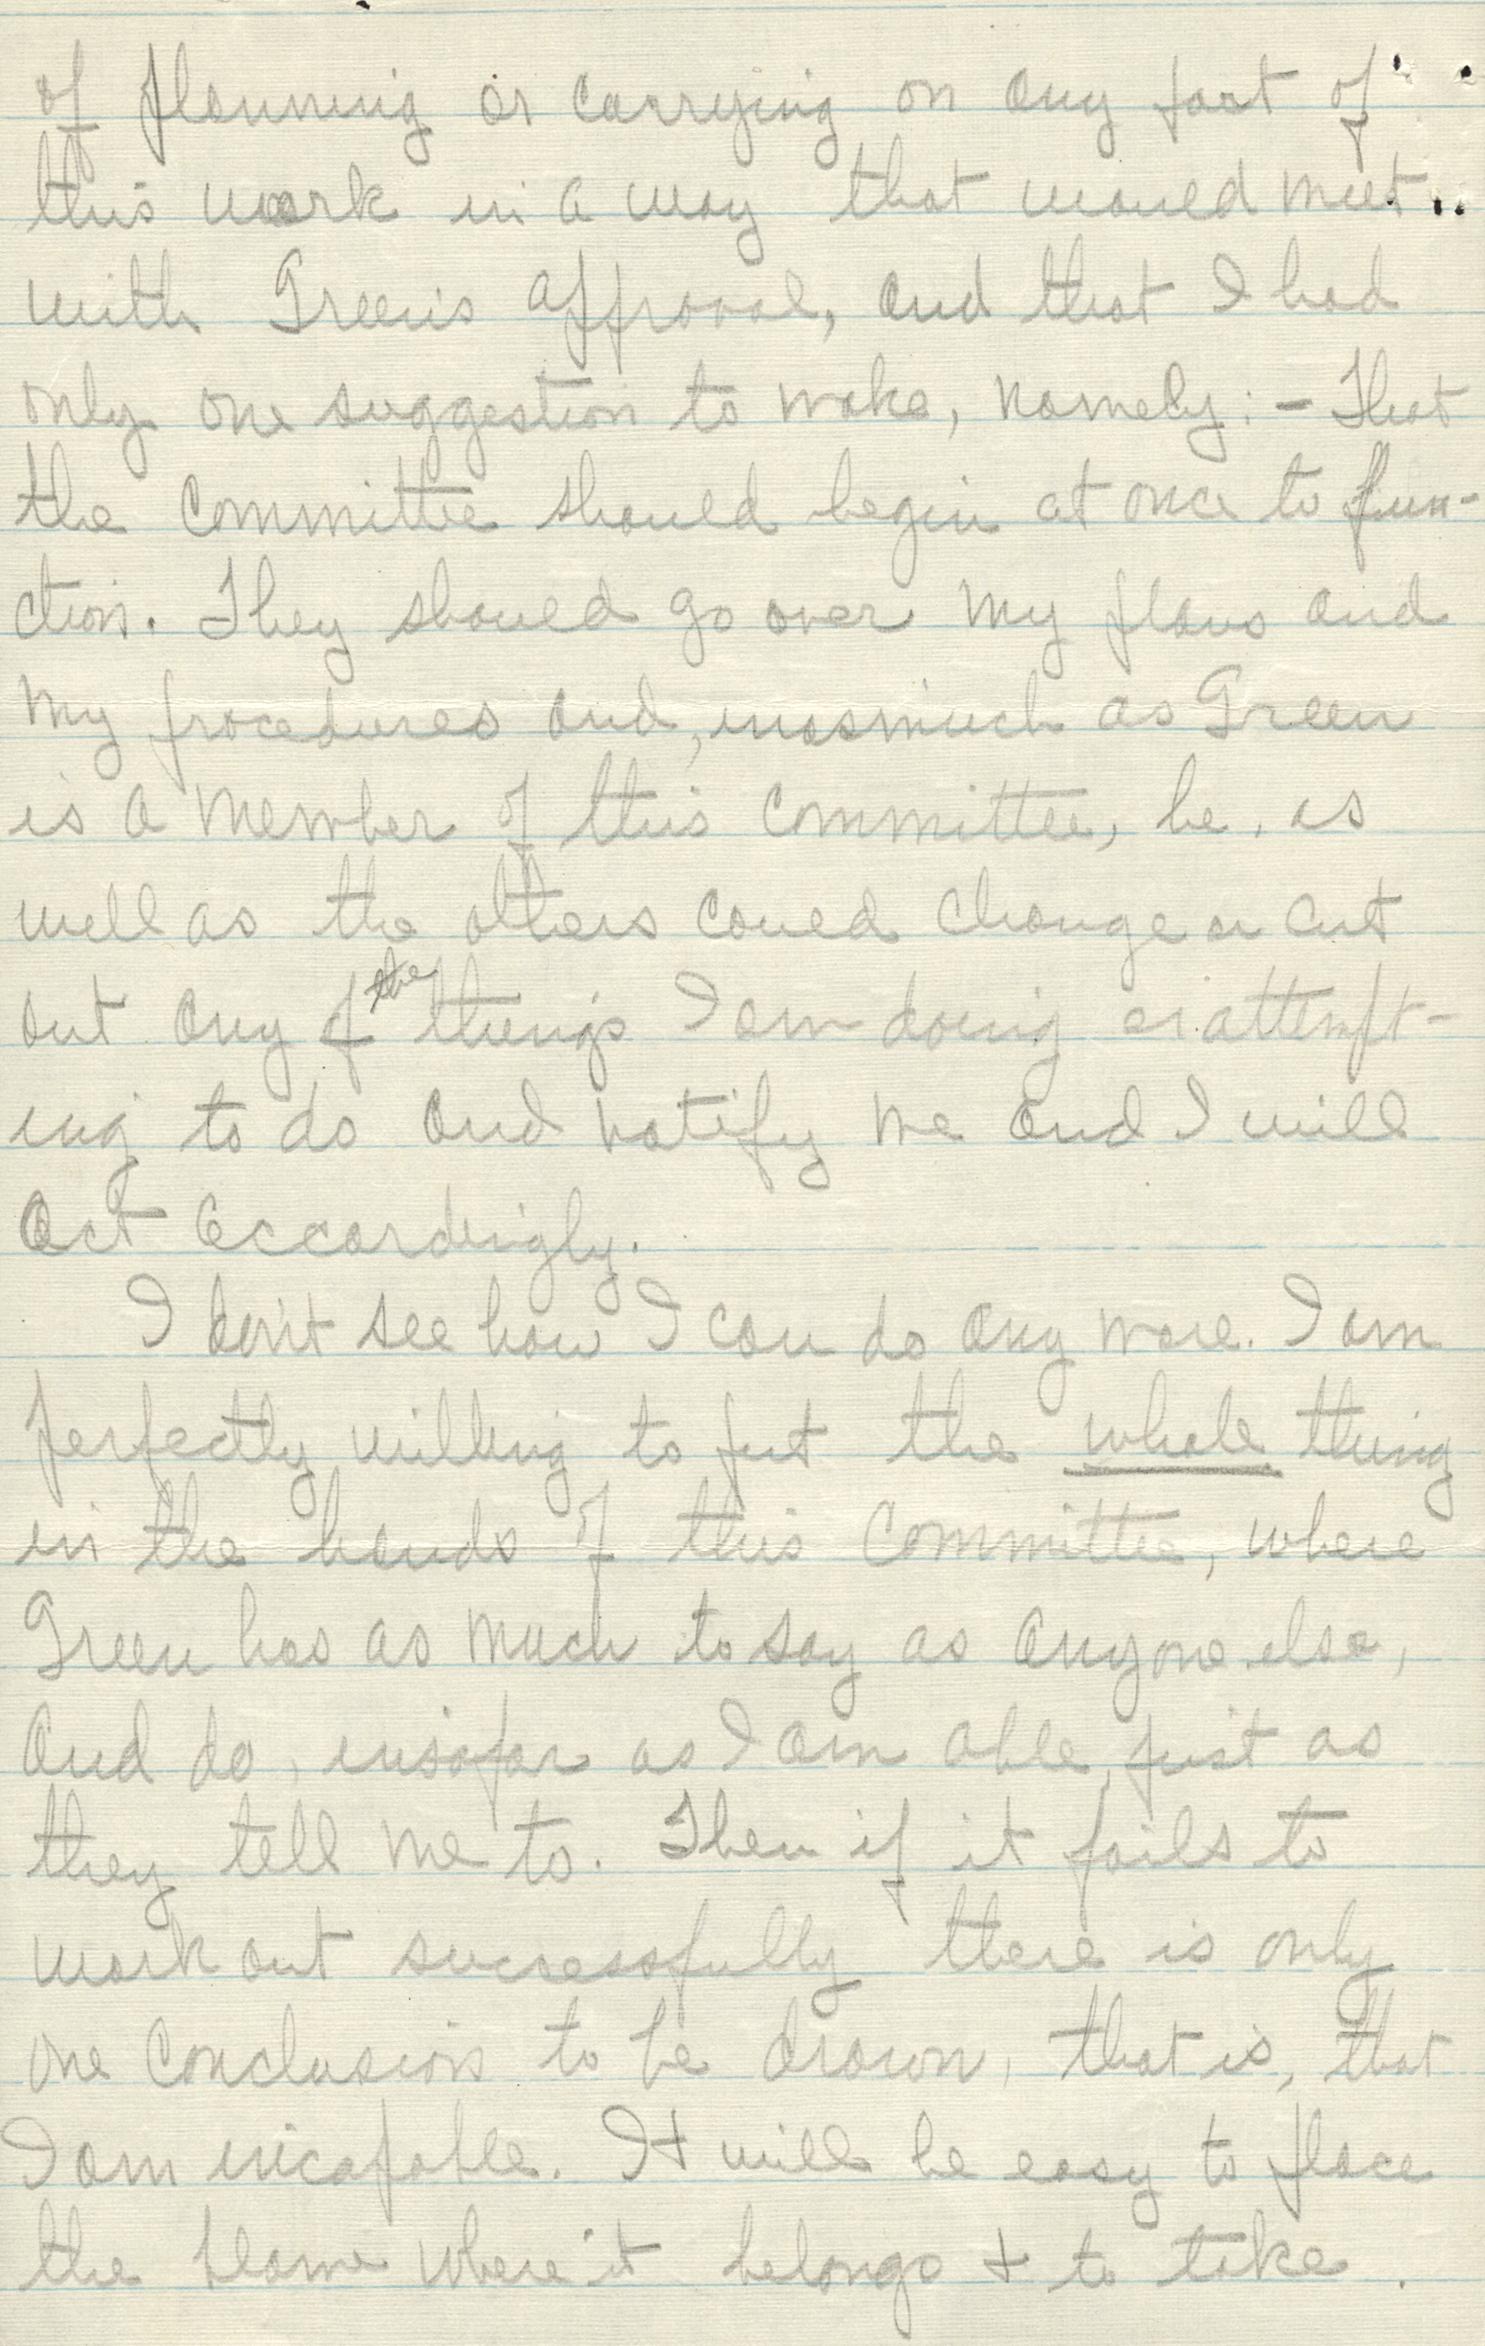 of planning or carrying on any part of
this work in a way that would meet
with Green's approval, and that I had
only one suggestion to make, namely: - That
the Committee should begin at once to fun-
ction. They should go over my plans and
my procedures and, inasmuch as Green
is a member of this committee, he, as
well as the others could change or cut
out any of the things I am doing or attempt-
ing to do and notify me and I will
act accordingly.
I don't see how I can do any more. I am
perfectly willing to put the whole thing
in the hands of this Committee, where
Green has as much to say as anyone else,
and do, insofar as I am able, just as
they tell me to. Then if it fails to
work out successfully there is only
one conclusion to be drawn, that is, that
I am incapable. It will be easy to place
the blame where it belongs + to take.